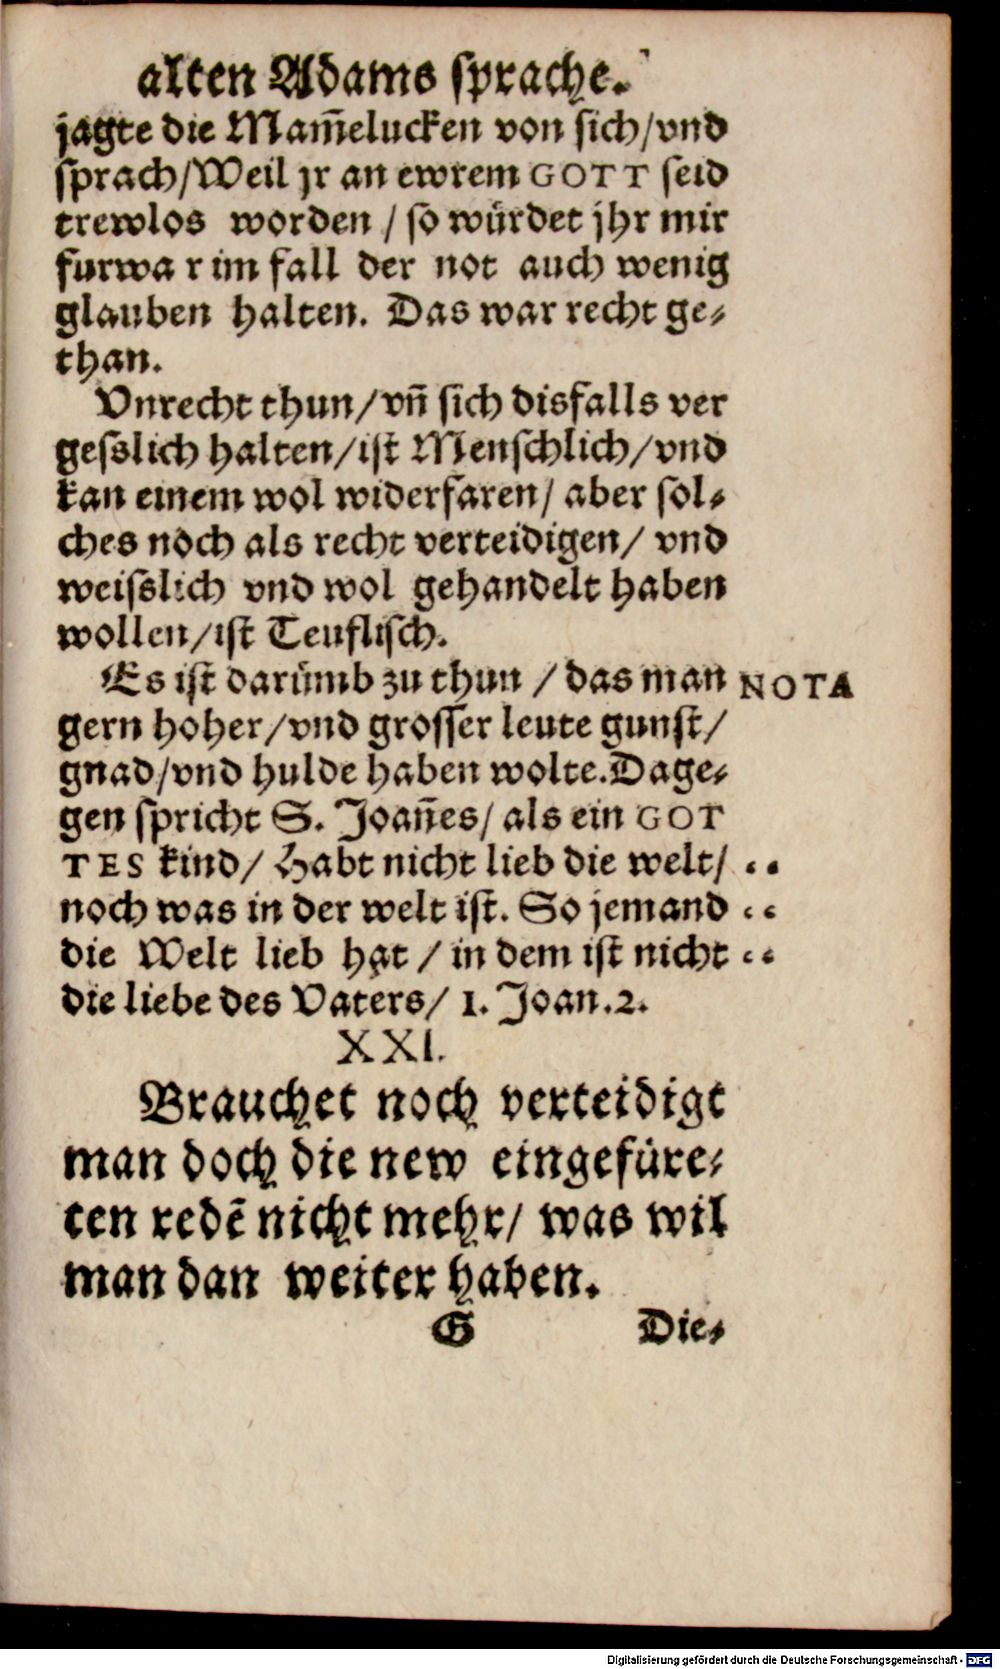 alten Adams sprache.
jagte die Mam̃elucken von sich/vnd
sprach/Weil jr an ewrem GOTT seid
trewlos worden / so würdet jhr mir
furwa r im fall der not auch wenig
glauben halten. Das war recht ge⸗
than.
Vnrecht thun/vñ sich disfalls ver
gesslich halten/ist Menschlich/vnd
kan einem wol widerfaren/ aber sol⸗
ches noch als recht verteidigen/ vnd
weisslich vnd wol gehandelt haben
wollen/ist Teuflisch.
Es ist darümb zu thun / das man NOTA
gern hoher/vnd grosser leute gunst/
gnad/vnd hulde haben wolte. Dage⸗
gen spricht S. Joañes/ als ein GOT
TES kind/ Habt nicht lieb die welt/ ..
noch was in der welt ist. So jemand ..
die Welt lieb hat / in dem ist nicht ..
die liebe des Vaters/ 1. Joan.2.
XXI.
Brauchet noch verteidigt
man doch die new eingefüre⸗
ten redē nicht mehr/ was wil
man dan weiter haben.
G Die⸗
Digitalisierung gefördert durch die Deutsche Forschungsgemeinschaft - DFG